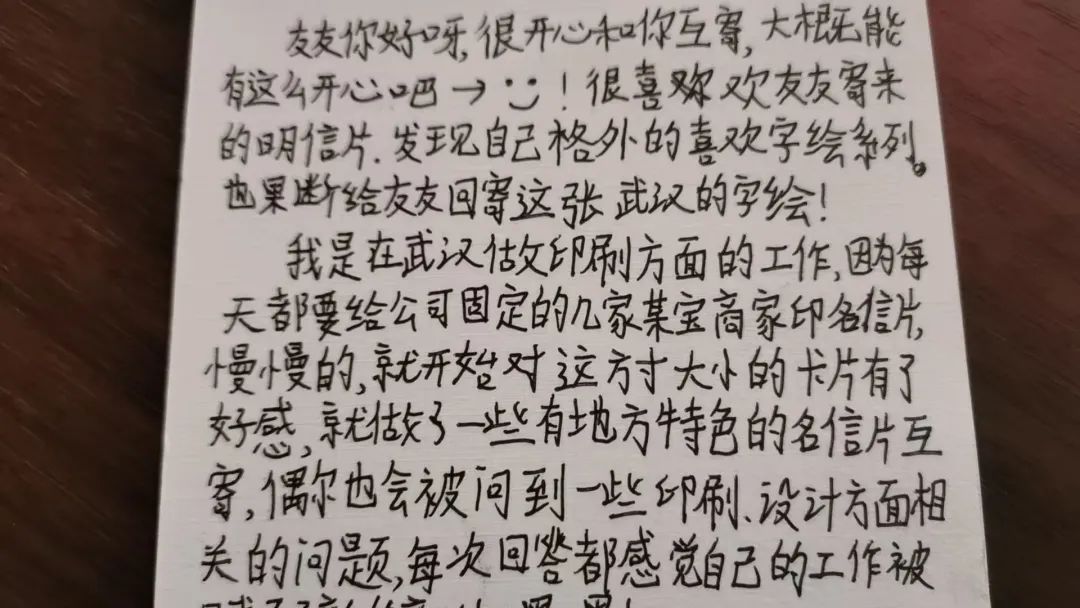 友友你好呀,很开心和你互寄,大概能
有这么开心吧→:)!很喜欢欢友友寄来
的明信片.发现自己格外的喜欢字绘系列。
也果断给友友回寄这张武汉的字绘!
我是在武汉做印刷方面的工作,因为每
天都要给公司固定的几家某宝商家印名信片,
慢慢的,就开始对这方寸大小的卡片有了
好感,就做了一些有地方特色的名信片互
寄,偶尔也会被问到一些印刷、设计方面相
关的问题,每次回答都感觉自己的工作被